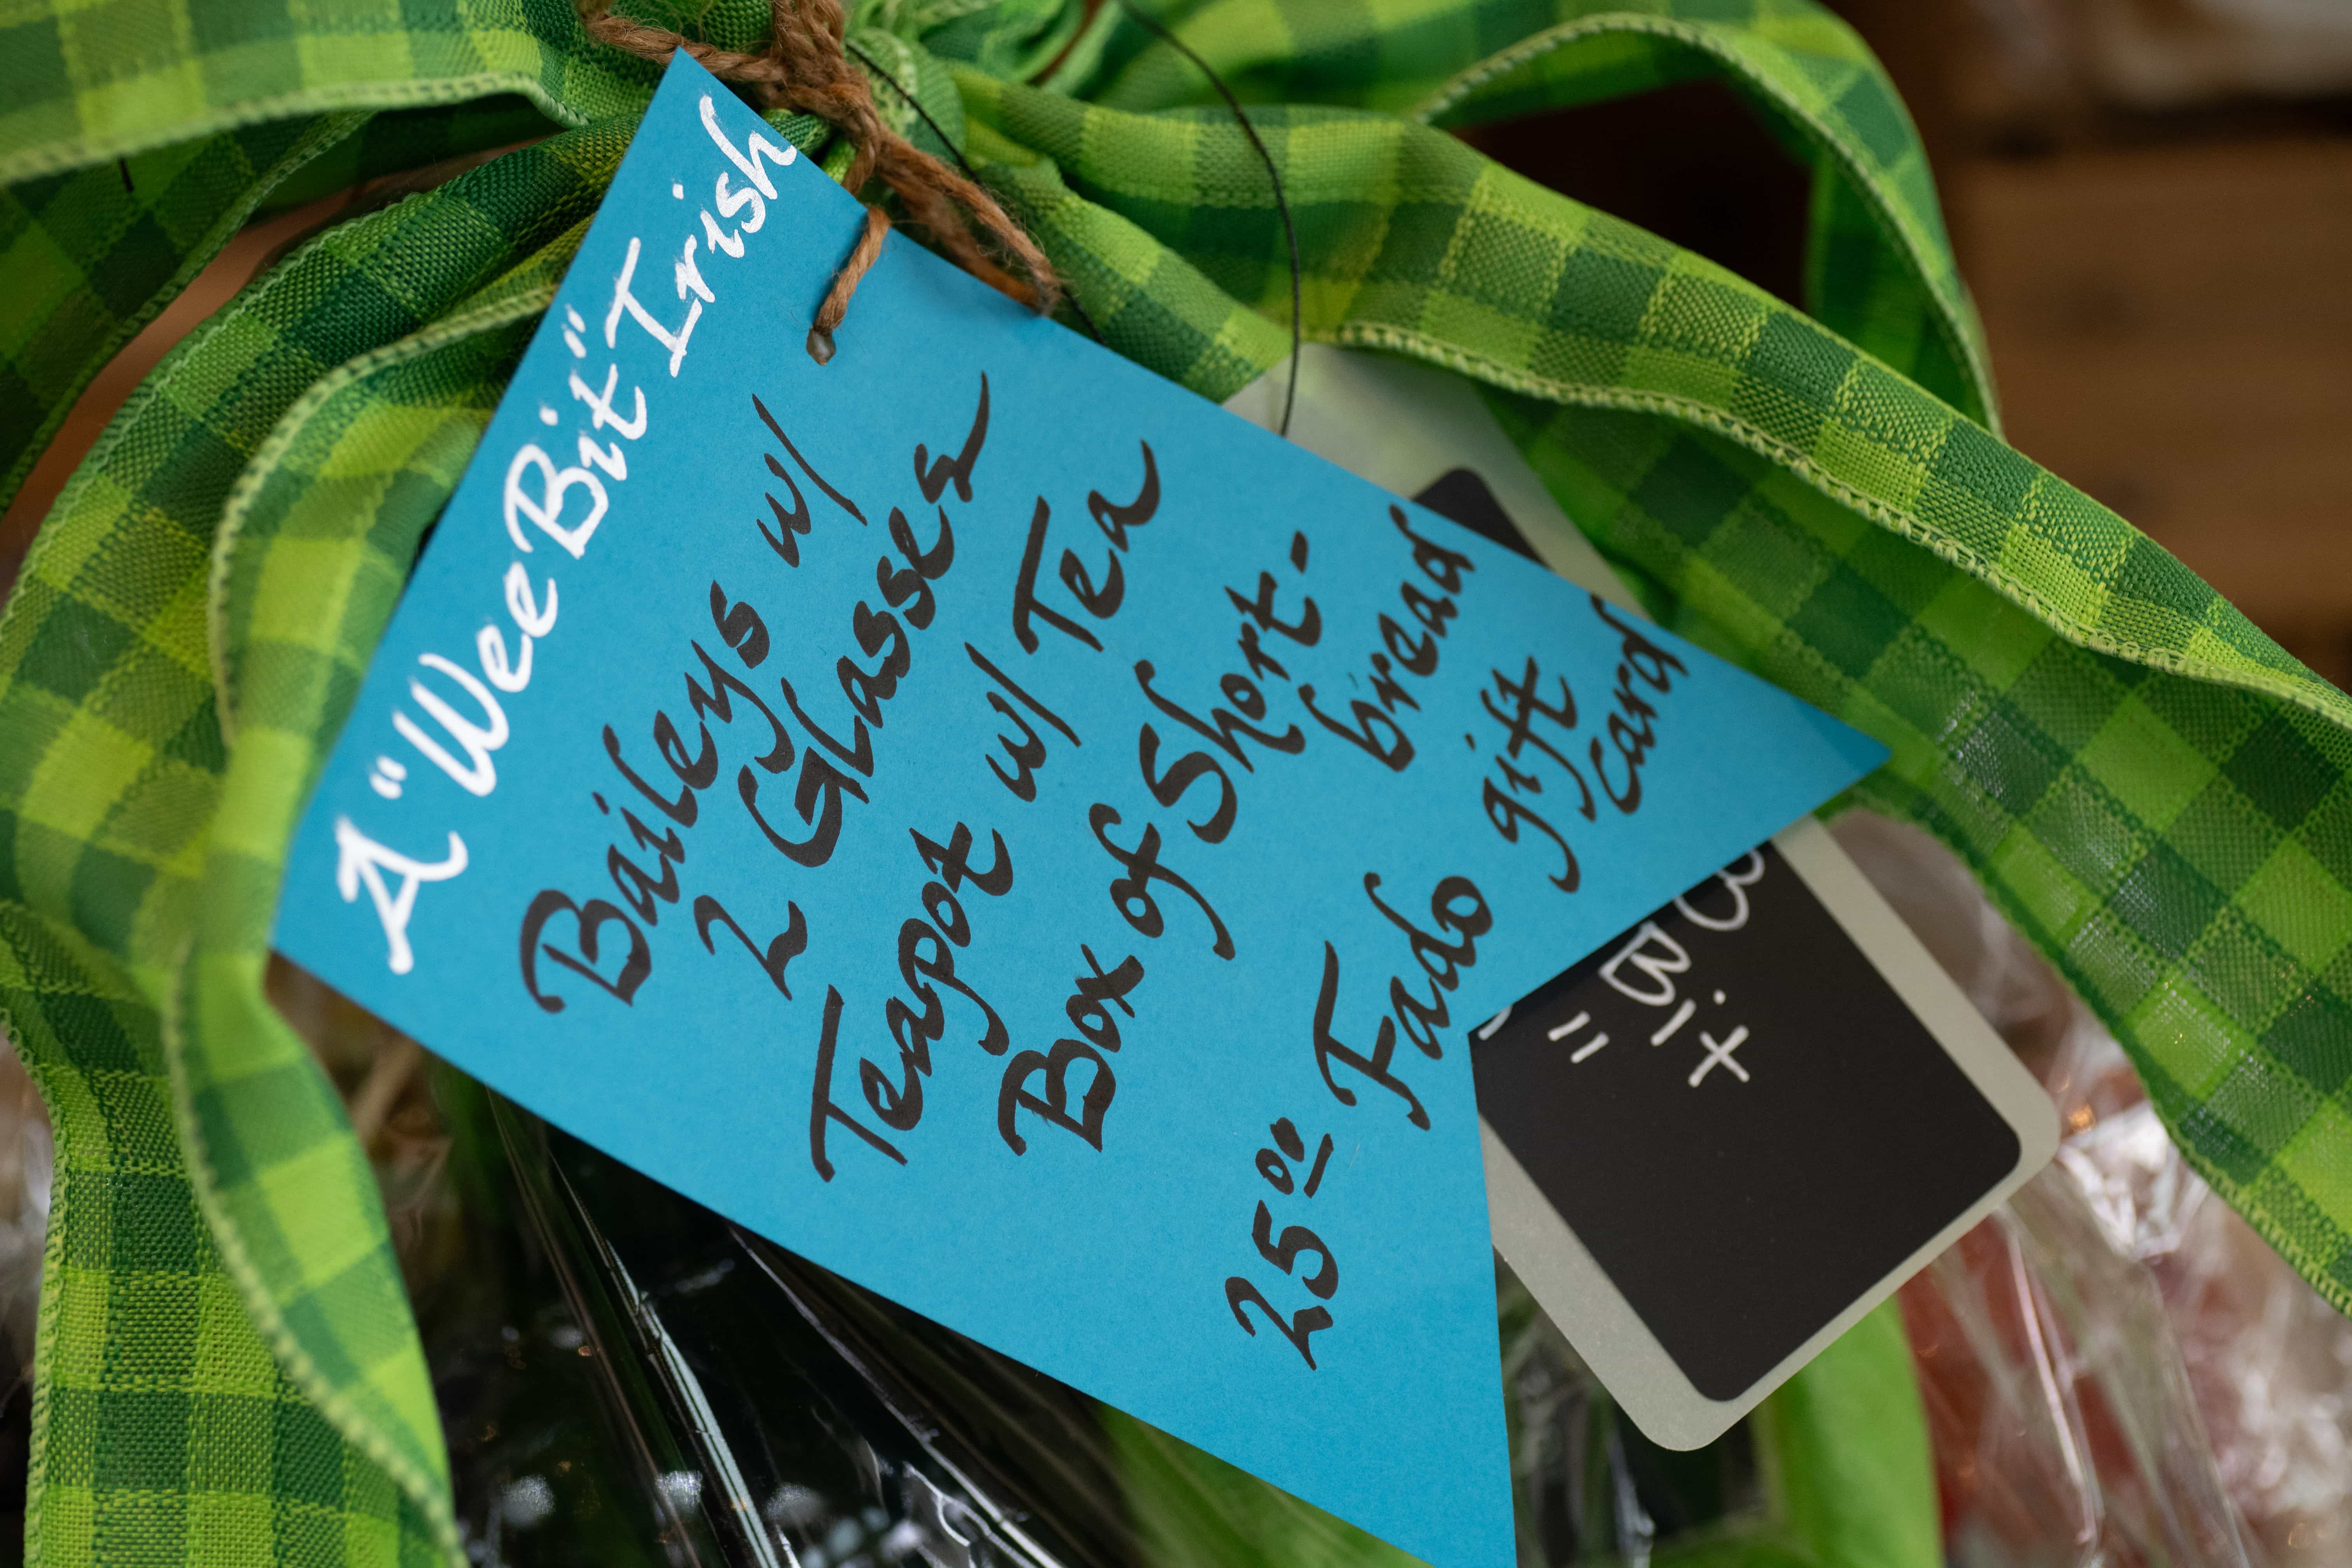 A "Wee Bit" Irish
Baileys w/
2 Glasses
Teapot w/ Tea
Box of Short-
bread
25⁰⁰ Fado gift
card
"
Bit